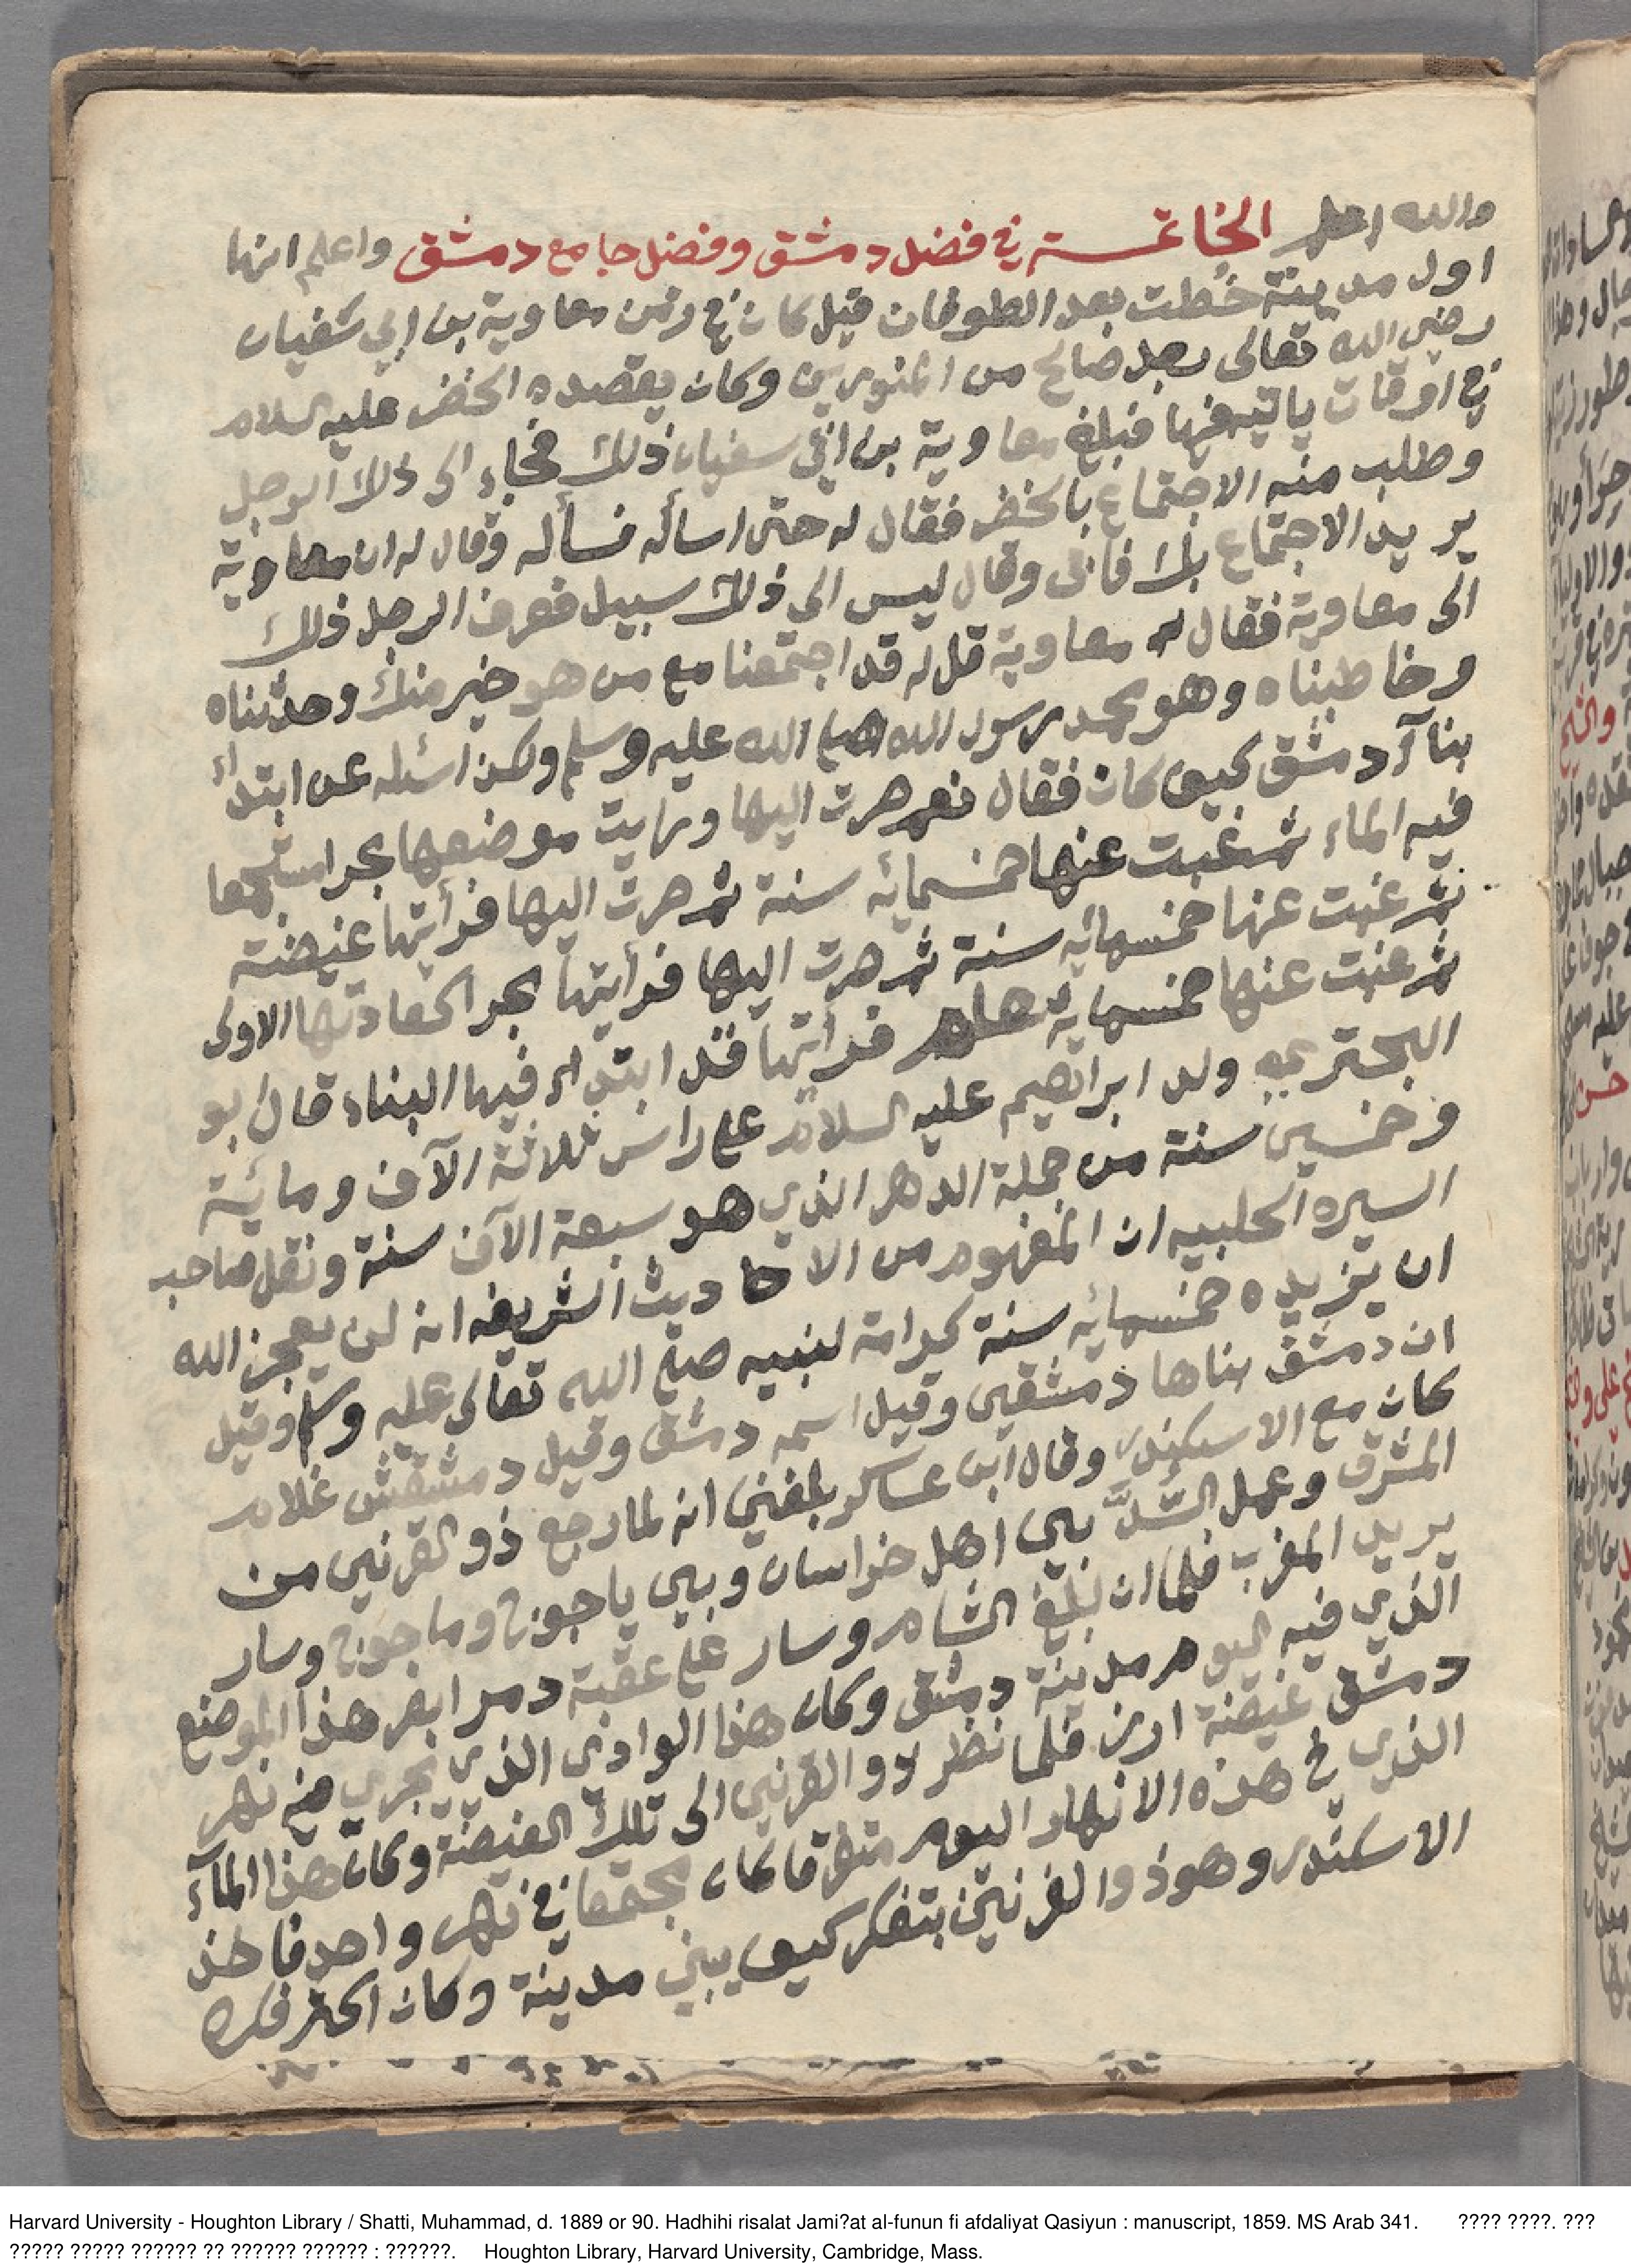 والله اعلم الخاتمة في فضل دمشق وفضل جامع دمشق واعلم انها
اول مدينة خُطت بعد الطوفان قيل كان في زمن معاوية بن ابي سفيان
رضي الله تعالى رجل صالح من وكان يقصده الخضر عليه السلام
في اوقات ياتيه فيها فبلغ معاوية بن ابي سفيان ذلك فجاء الى ذلك الرجل
وطلب منه الاجتماع بالخضر فقال له حتى اسأله فسأله وقال له ان معاوية
يريد الاجتماع بك فابى وقال ليس الى ذلك سبيل فعرف الرجل ذلك
الى معاوية فقال له معاوية قل له قد اجتمعنا مع من هو خير منك وحدثناه
وخاطبناه وهو محمد رسول الله صلى الله عليه وسلم ولكن اسئله عن ابتداء
بنآء دمشق كيف كان فقال نعم صرت اليها ورايت موضعها بحرا مستجمعا
فيه الماء ثم غبت عنها خمسمائه سنة ثم صرت اليها فرأيتها غيضة
ثم غبت عنها خمسمائه سنة ثم صرت اليها فرأيتها بحر اكعادتها الاولى
ثم غبت عنها خمسمايه عام فرأيتها قد ابتداء فيها البناء قال ابو
البختري ولد ابراهيم عليه السلام على راس ثلاثة الآف ومائية
وخمسين سنة من جملة الدهر الذي هو سبعة الآف سنة ونقل صاحب
السيره الحلبيه ان المفهوم من الاحاديث الشريفه انه لن يعجز الله
ان يزيده خمسمائه سنة كرامة لنبيه صلى الله تعالى عليه وسلم وقيل
ان دمشق بناها دمشقين وقيل اسمه دمشق وقيل دمشقش غلام
كان مع الاسكندر وقال ابن عساكر بلغني انه لما رجع ذو القرنين من
المشرق وعمل السَّدَّ بين اهل خراسان وبين ياجوج وماجوج وسار
يريد المغرب فلما ان بلغ الشام وسار على عقبة دمر ابصر هذا الموضع
الذي فيه اليوم مدينة دمشق وكان هذا الوادي الذي يجري فيه نهر
دمشق غيضة ارز فلما نظر ذو القرنين الى تلك الغيضة وكان هذا المآء
الذي في هذه الانهار اليوم متفرقا كان مجتمعا في نهر واحد فاخذ
الاسكندر وهو ذو القرنين بتفكر كيف يبني مدينة وكان اكثر فكره
Harvard University - Houghton Library / Shatti, Muhammad, d. 1889 or 90. Hadhihi risalat Jami?at al-funun fi afdaliyat Qasiyun : manuscript, 1859. MS Arab 341. ???? ????. ???
????? ????? ?????? ?? ?????? ?????? : ??????. Houghton Library, Harvard University, Cambridge, Mass.